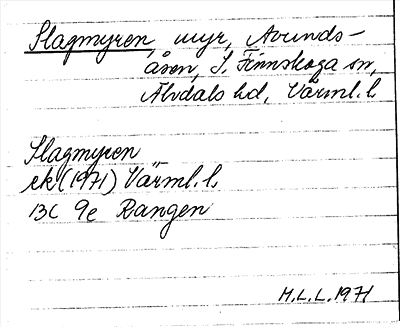 Slagmyren, myr, Avunds-
åsen, S. Finnskoga sn,
Älvdals hd, Värml. l.
Slagmyren
ek (1971) Värml. l.
13C 9e Rangen
M.L.L. 1971